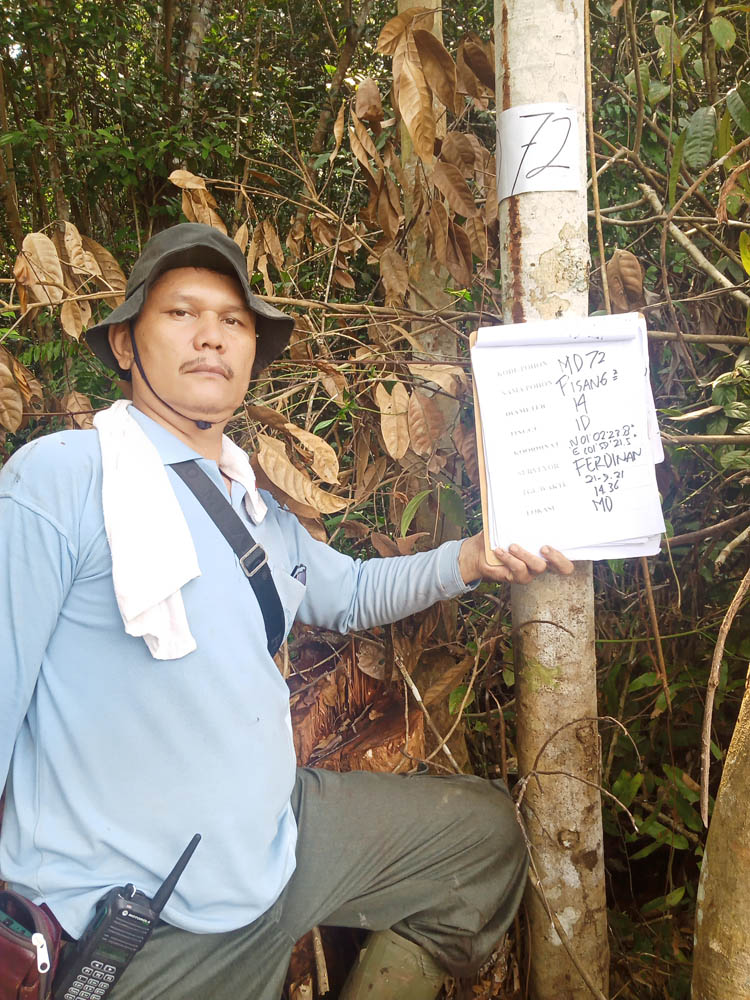 72
KODE POHON MD 72
NAMA POHON PISANG²
DIAMETER 14
TINGGI 10
KOORDINAT N 01°02'23.8"
E 101°50'21.5"
SURVEYOR FERDINAN
21-3.21
TGL/WAKTU 14.36
LOKASI MD
MOTOROLA